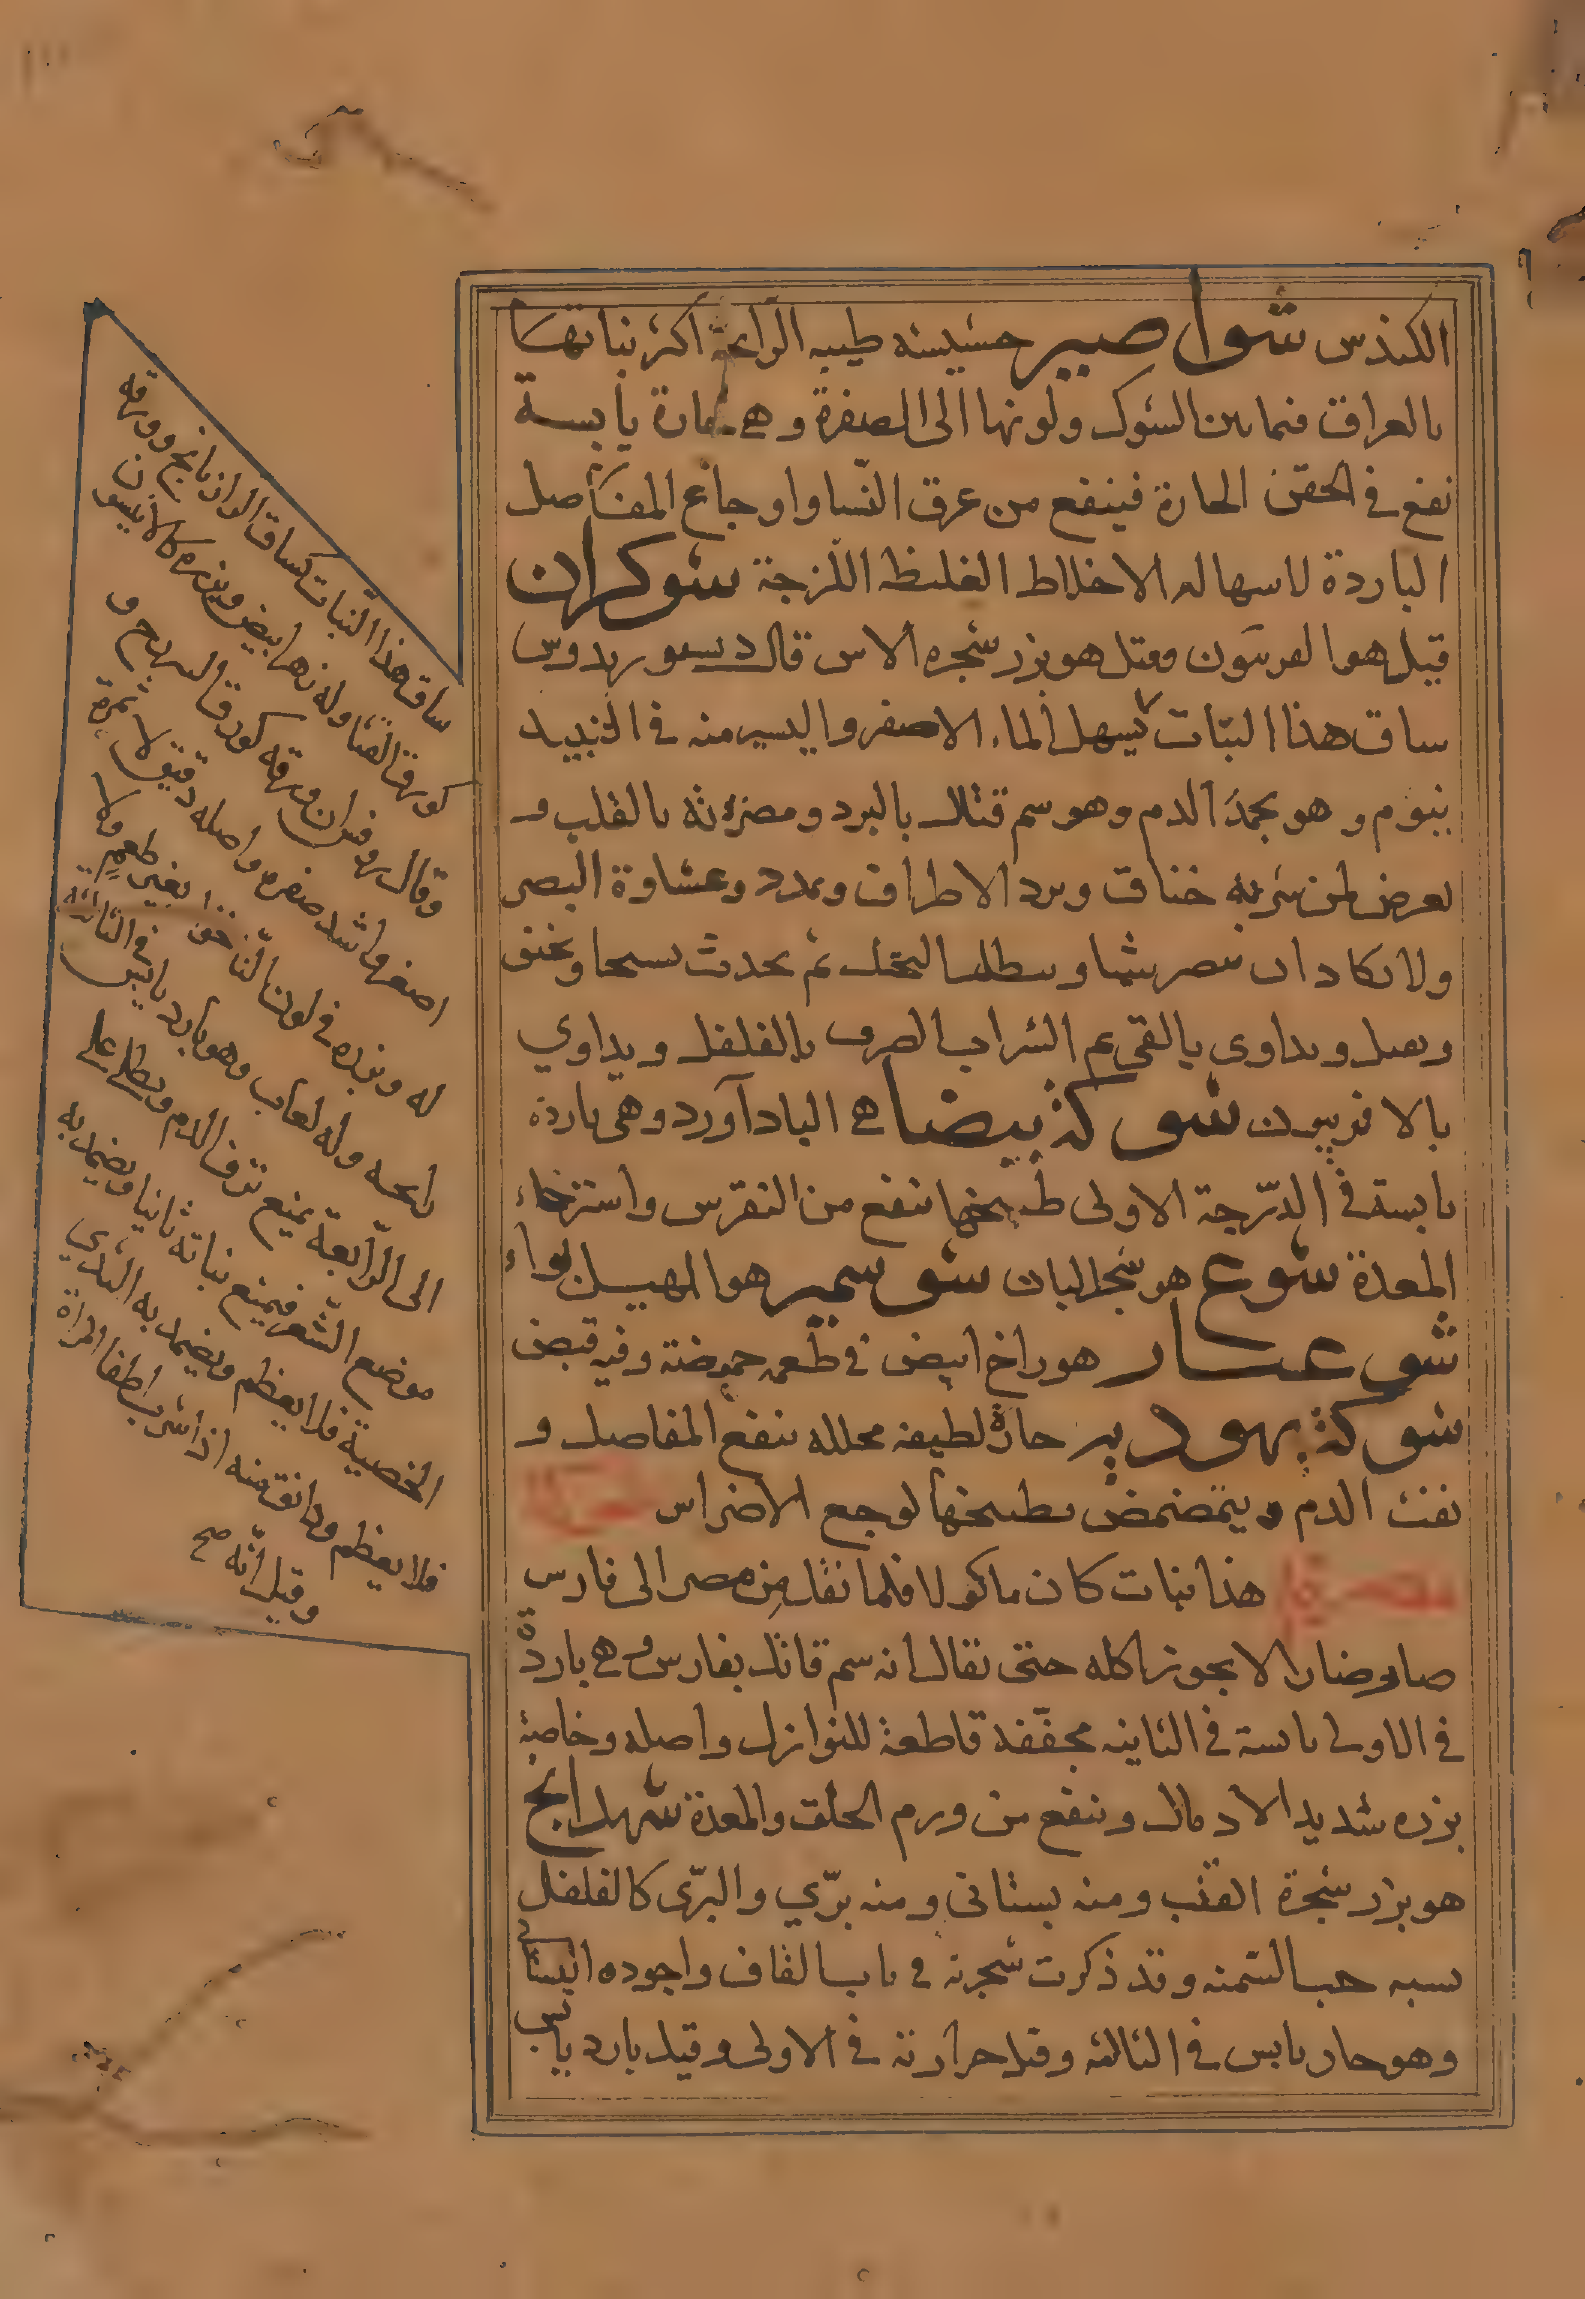 الكندس شواصير حشيشة طيبه الرايحة اكثر نباتها
بالعراق فيما بين الشوك ولونها الى الصفرة وهى حارة يابسة
تقع فى الحقن الحارة فينفع من عرق النّسا واوجاع المفاصل
الباردة لاسهاله الاخلاط الغليظه اللزجة شوكران
قيل هو ا وقيل هو بزر شجره الاس قال ديسقوريدوس
ساق هذا النبات يسهل الماء الاصفر واليسير منه فى النبيد
ينوم وهو يجمد الدم وهو سم قتال بالبرد ومضرته بالقلب و
يعرض لمن شربه خناق وبرد الاطراف وتمدد وغشاوة البصر
ولا يكاد ان يبصر شيا و ثم يحدث تشنجا وتخنق
ويقتل ويداوى بالقى ثم الشراب الصرف بالفلفل ويداوي
بالافربيون شوكة بيضا هى الباداآورد وهى باردة
يابسة فى الدّرجة الاولى طبيخها ينفع من النقرس واسترخاء
المعدة شوع هو شجر البان شوسمير هو الهيل بواء
شوعسار هو راخ ابيض فى طعمه حموضة وفيه قبض
شوكة يهودير حارة لطيفه محلله ينفع المفاصل و
نفث الدم ويتمضمض بطبيخها لوجع الاضراس
هذا نبات كان ماكولا فلما نقل من مصر الى فارس
صار ضارا لا يجوز اكله حتى يقال انه سم قاتل بفارس وهى باردة
فى الاولى يابسة فى الثانيه مجفّفه قاطعة للنوازل واصله وخاصّة
بزره شديد الادمال وينفع من ورم الحلق والمعدة شهدانج
هو بزر شجرة القنب ومنه بستانى ومنه برّي والبرّى كالفلفل
يشبه حب السّمنه وقد ذكرت شجرته فى باب القاف واجوده البستانى
وهو حار يابس فى الثالثه وقيل حرارته فى الاولى وقيل بارد يابس
ساق هذا النّبات كساق الرازيانج وورقه
كورق القثّا وله زهر ابيض وبزره كالانيسون
وقال روفس ان ورقه كورق اليبروح و
اصغر واشد صفره واصله دقيق لا ثمرة
له وبزره فى لون النّانخوا بغير طعم ولا
رايحه وله لعاب وهو بارد يابس فى الثالثه
الى الرّابعة يمنع نزف الدم ويطلى على
موضع الشّعر فيمنع نباته ثانيا ويضمد به
الخصية فلا يعظم ويضمد به الثدي
فلا يعظم ودانق منه اذا شرب اطفا المراة
وقيل انّه صح